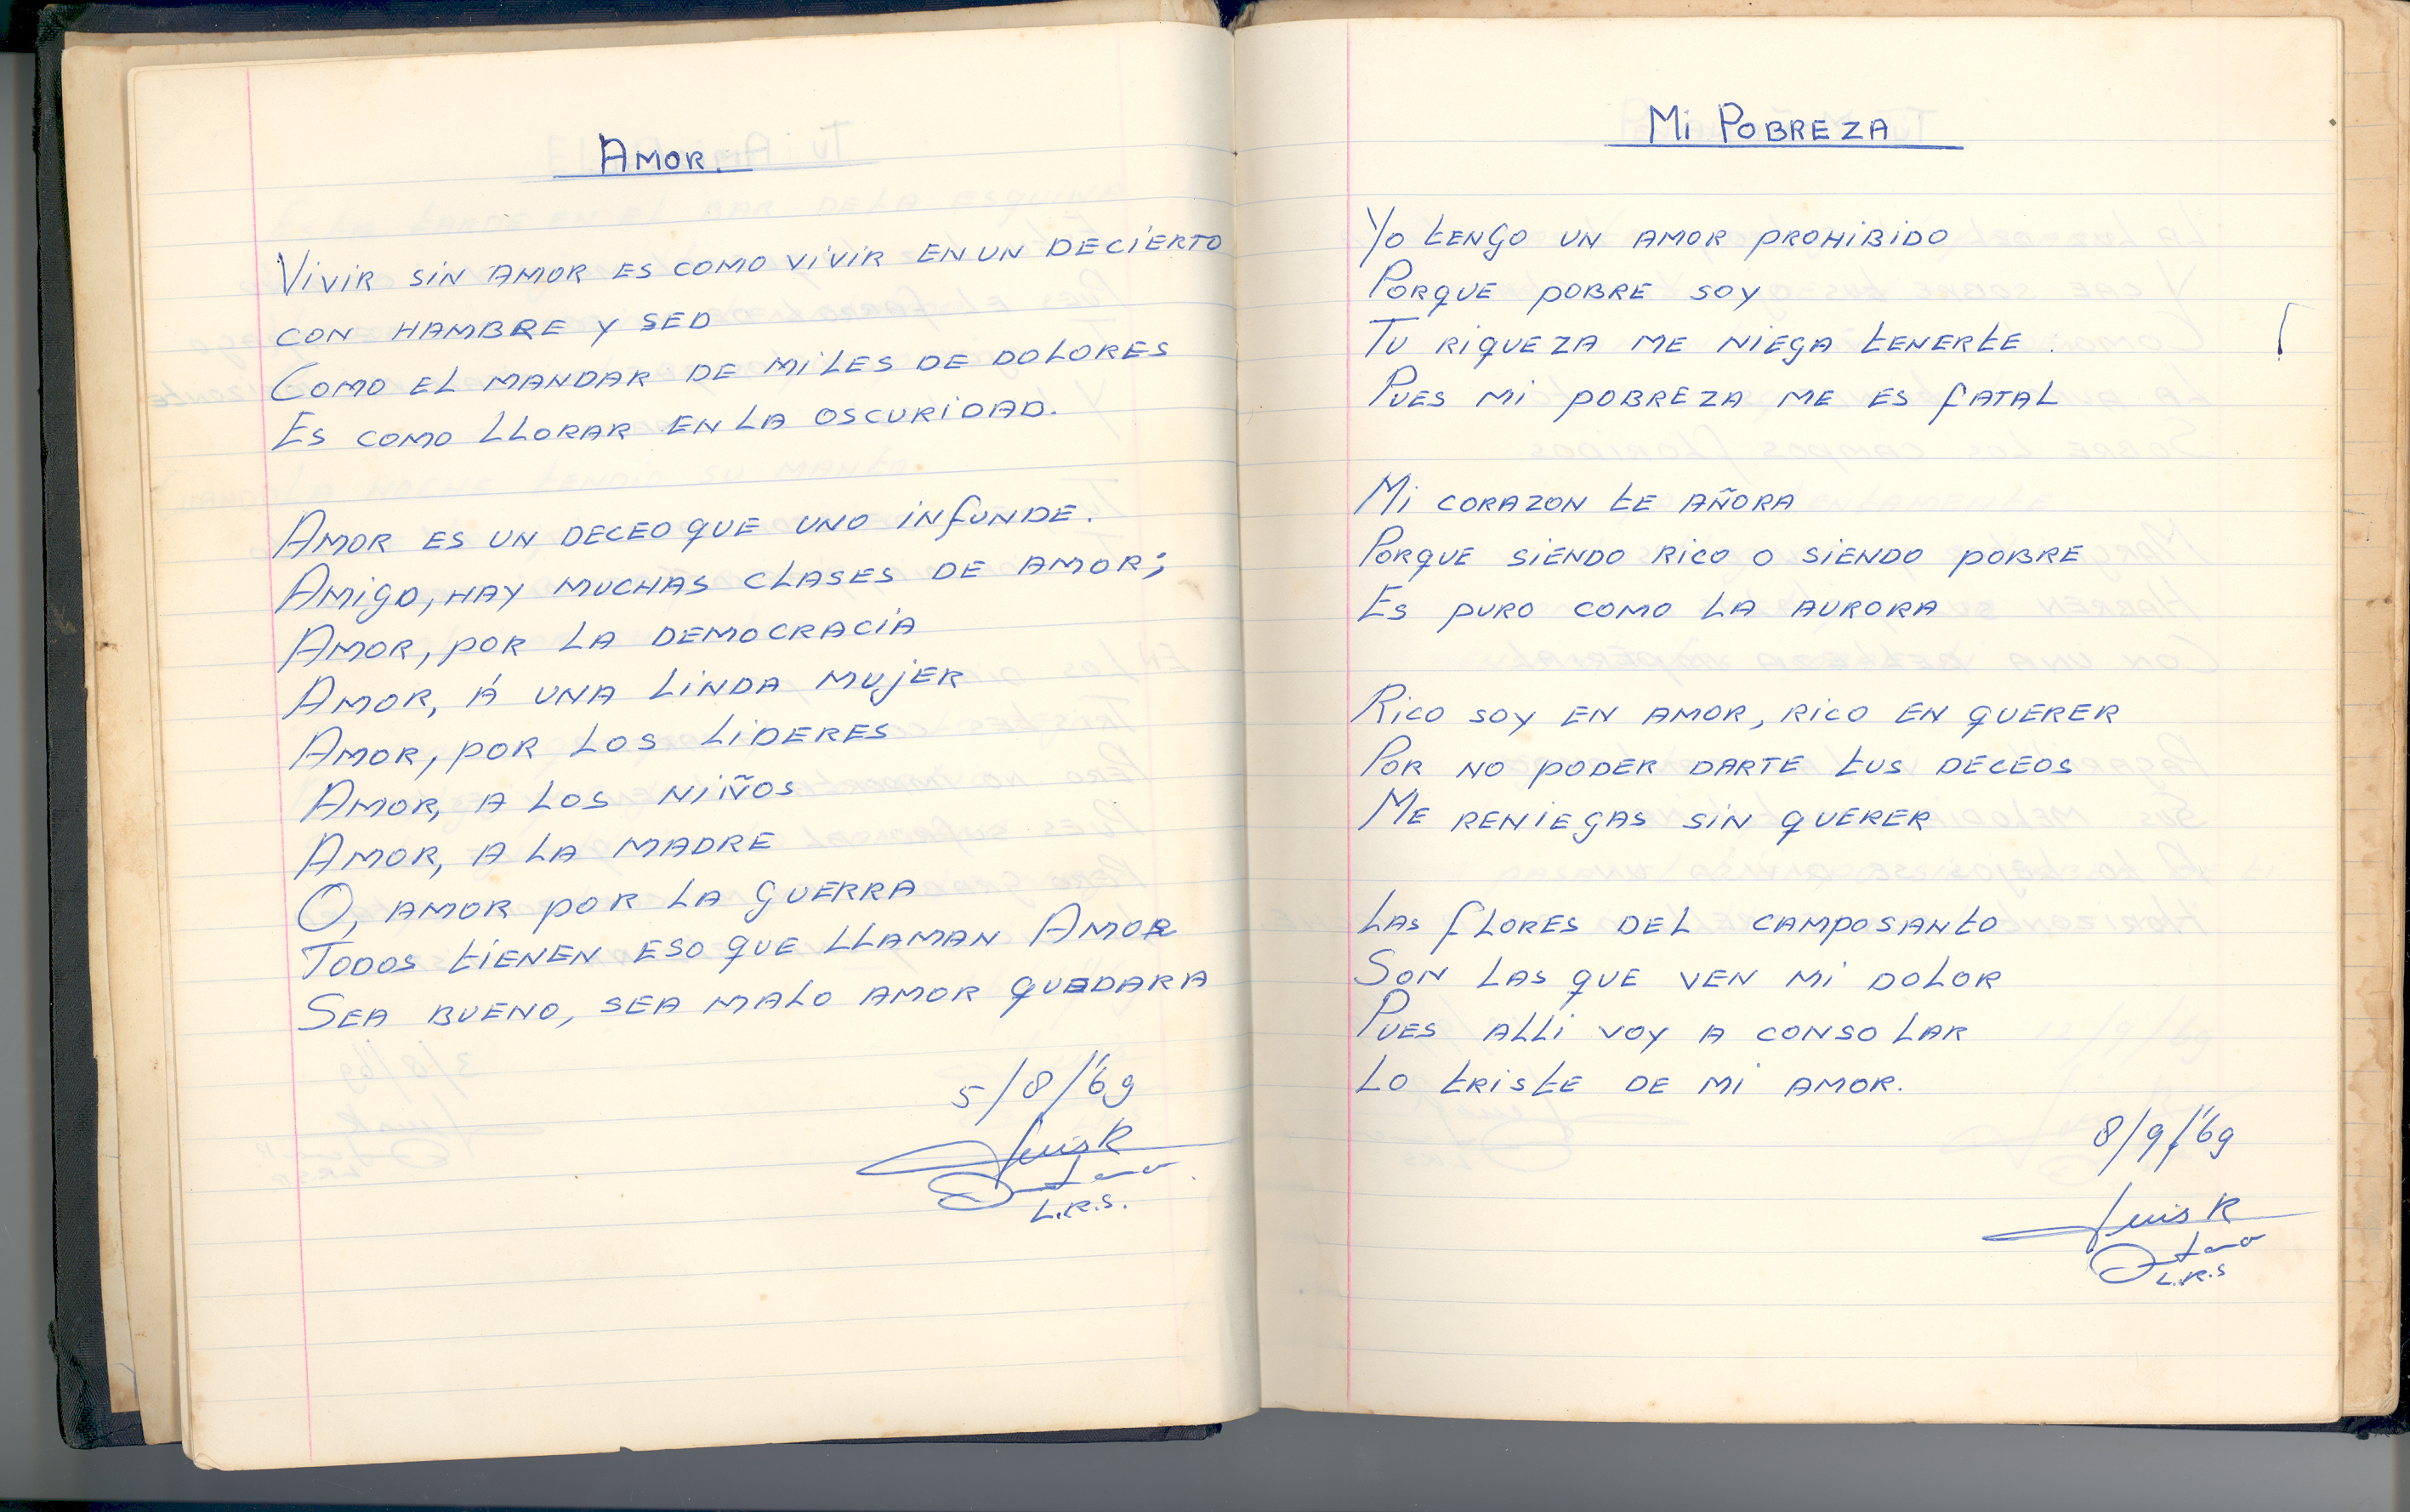 AMOR.
VIVIR SIN AMOR ES COMO VIVIR EN UN DECIERTO
CON HAMBRE Y SED
COMO EL MANDAR DE MILES DE DOLORES
ES COMO LLORAR EN LA OSCURIDAD.
AMOR ES UN DECEO QUE UNO INFUNDE.
AMIGO, HAY MUCHAS CLASES DE AMOR;
AMOR, POR LA DEMOCRACIA
AMOR, Á UNA LINDA MUJER
AMOR, POR LOS LIDERES
AMOR, A LOS NIÑOS
AMOR, A LA MADRE
O, AMOR POR LA GUERRA
TODOS TIENEN ESO QUE LLAMAN AMOR
SEA BUENO, SEA MALO AMOR QUEDARA
5/8/'69
Luis R
L.R.S.
MI POBREZA
YO TENGO UN AMOR PROHIBIDO
PORQUE POBRE SOY
TU RIQUEZA ME NIEGA TENERTE.
PUES MI POBREZA ME ES FATAL
MI CORAZON TE AÑORA
PORQUE SIENDO RICO O SIENDO POBRE
ES PURO COMO LA AURORA
RICO SOY EN AMOR, RICO EN QUERER
POR NO PODER DARTE TUS DECEOS
ME RENIEGAS SIN QUERER
LAS FLORES DEL CAMPOSANTO
SON LAS QUE VEN MI DOLOR
PUES ALLI VOY A CONSOLAR
LO TRISTE DE MI AMOR.
8/9/'69
Luis R
L.R.S